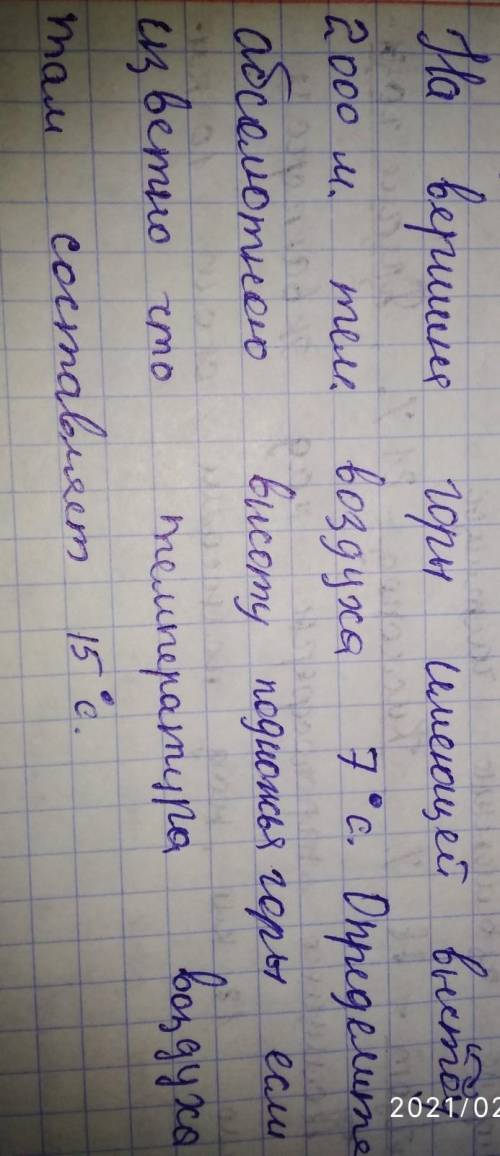 На вершине горы имеющей выстой
2000 м. тем. воздуха 7°с. Определите
абсолютною высоту подножья горы если
изветно что температура воздуха
там составляет 15°с.
2021/02